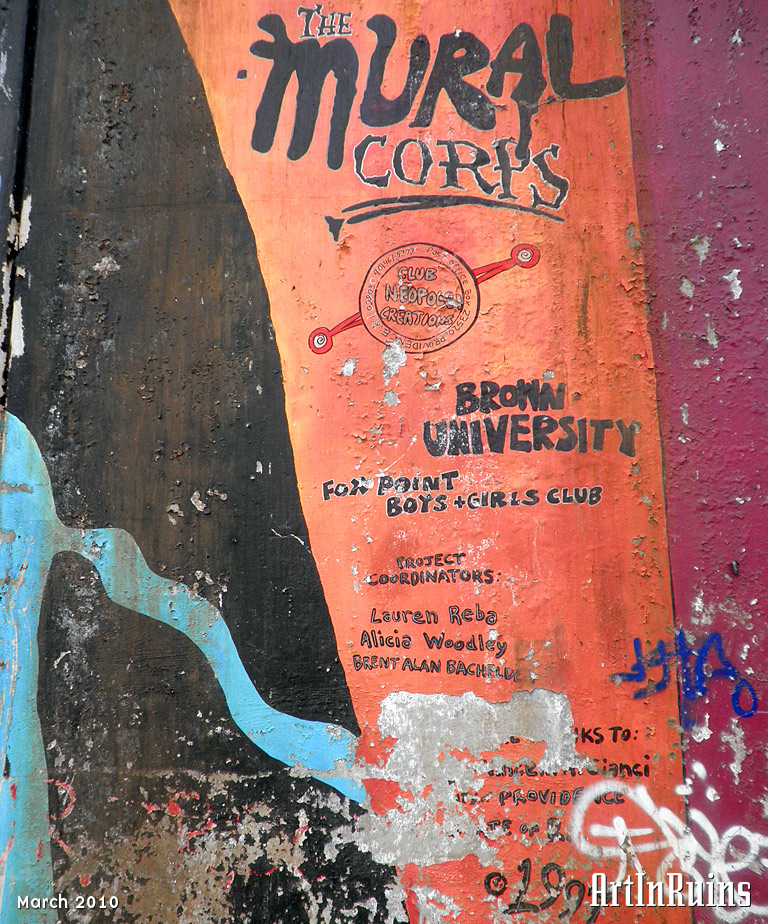 THE
MURAL
CORPS
CLUB
NEOPOCAL
CREATIONS
POST OFFICE BOX 23510 PROVIDENCE
BROWN
UNIVERSITY
FOX POINT
BOYS + GIRLS CLUB
PROJECT
COORDINATORS:
Lauren Reba
Alicia Woodley
BRENT ALAN BACHELDE
KS TO:
Cianci
PROVIDENCE
OF
© 199
March 2010
ArtInRuins